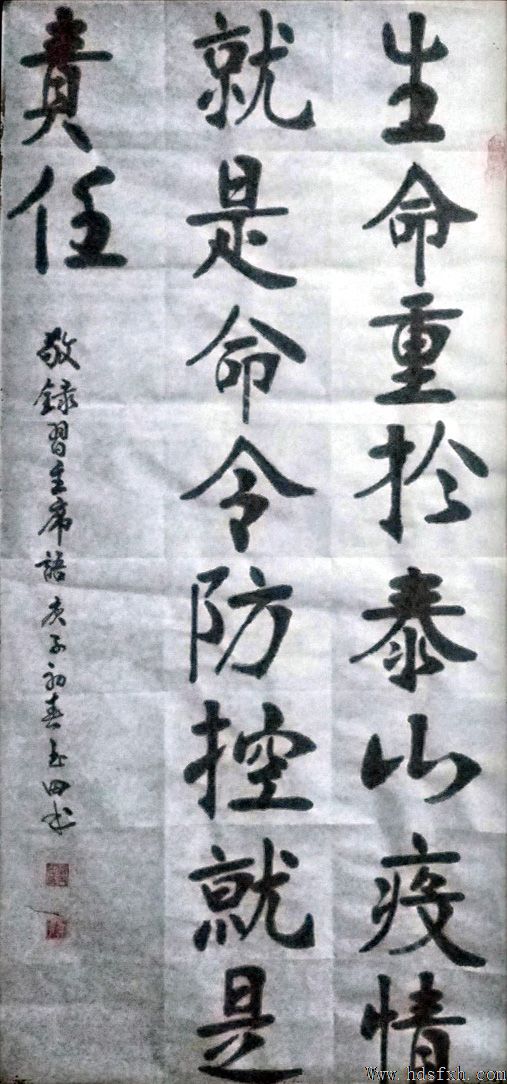 生命重於泰山疫情
就是命令防控就是
責任
敬録習主席語庚子初春玉田书
Www.hdsfxh.com